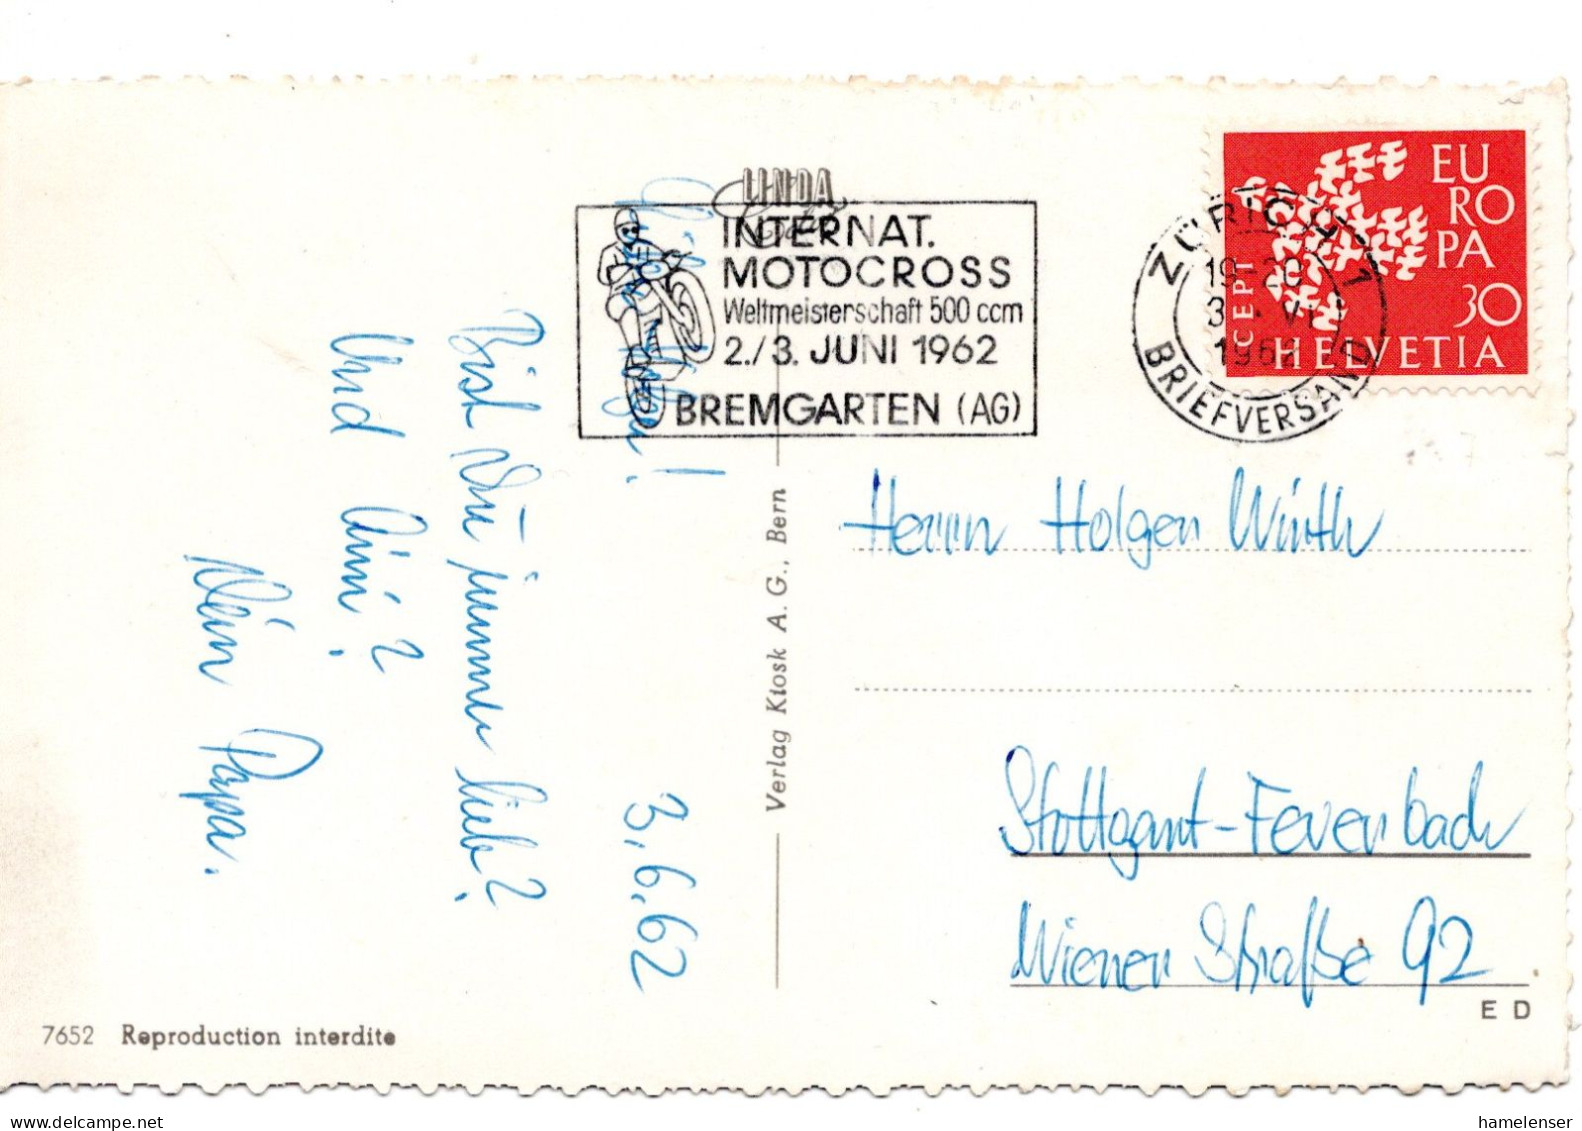 LINDA
INTERNAT.
MOTOCROSS
Weltmeisterschaft 500 ccm
2./3. JUNI 1962
BREMGARTEN (AG)
ZÜRICH 1
19-20
3. VI
1962
BRIEFVERSAND
EUROPA
CEPT
30
HELVETIA
3.6.62
Lieber Holger!
Bist Du immer lieb?
Und Aini?
Dein Papa.
Verlag Kiosk A. G., Bern
Herrn Holger Würth
Stuttgart-Feuerbach
Wiener Straße 92
E D
7652 Reproduction interdite
www.delcampe.net
hamelenser